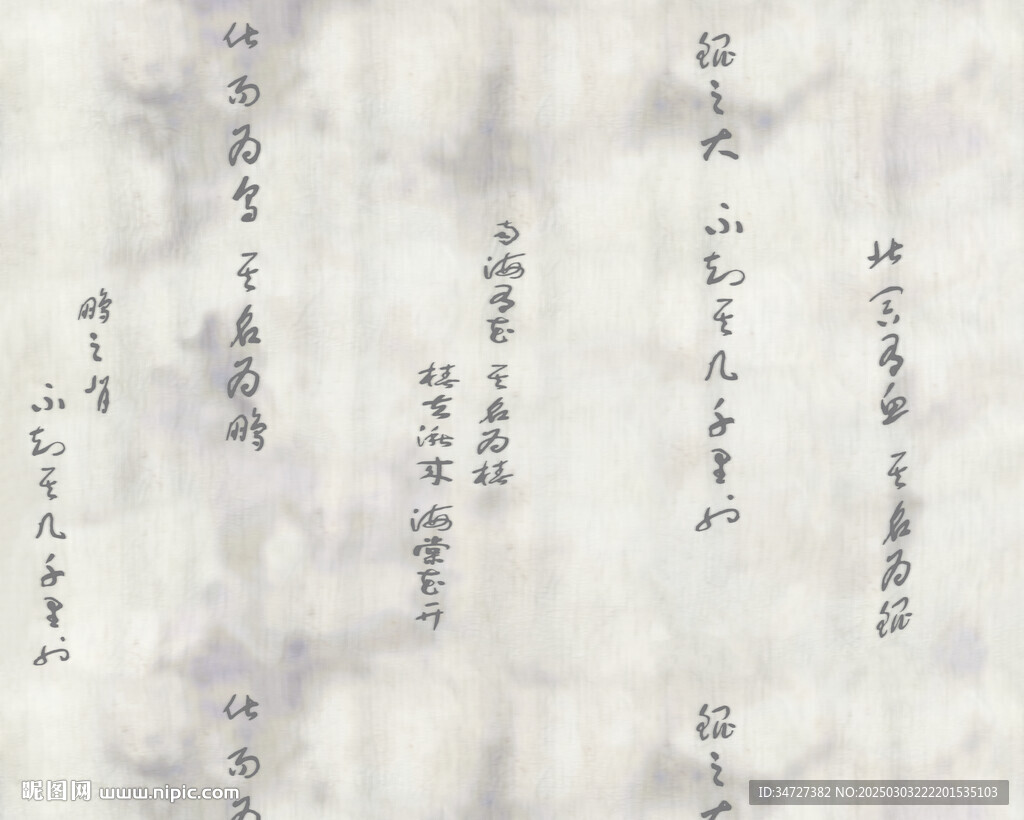 北冥有鱼 其名为鲲
鲲之大 不知其几千里也
南海有花 其名为椿
椿去湫来 海棠花开
化而为鸟 其名为鹏
鹏之背
不知其几千里也
鲲之大
化而为
昵图网 www.nipic.com
ID:34727382 NO:20250303222201535103